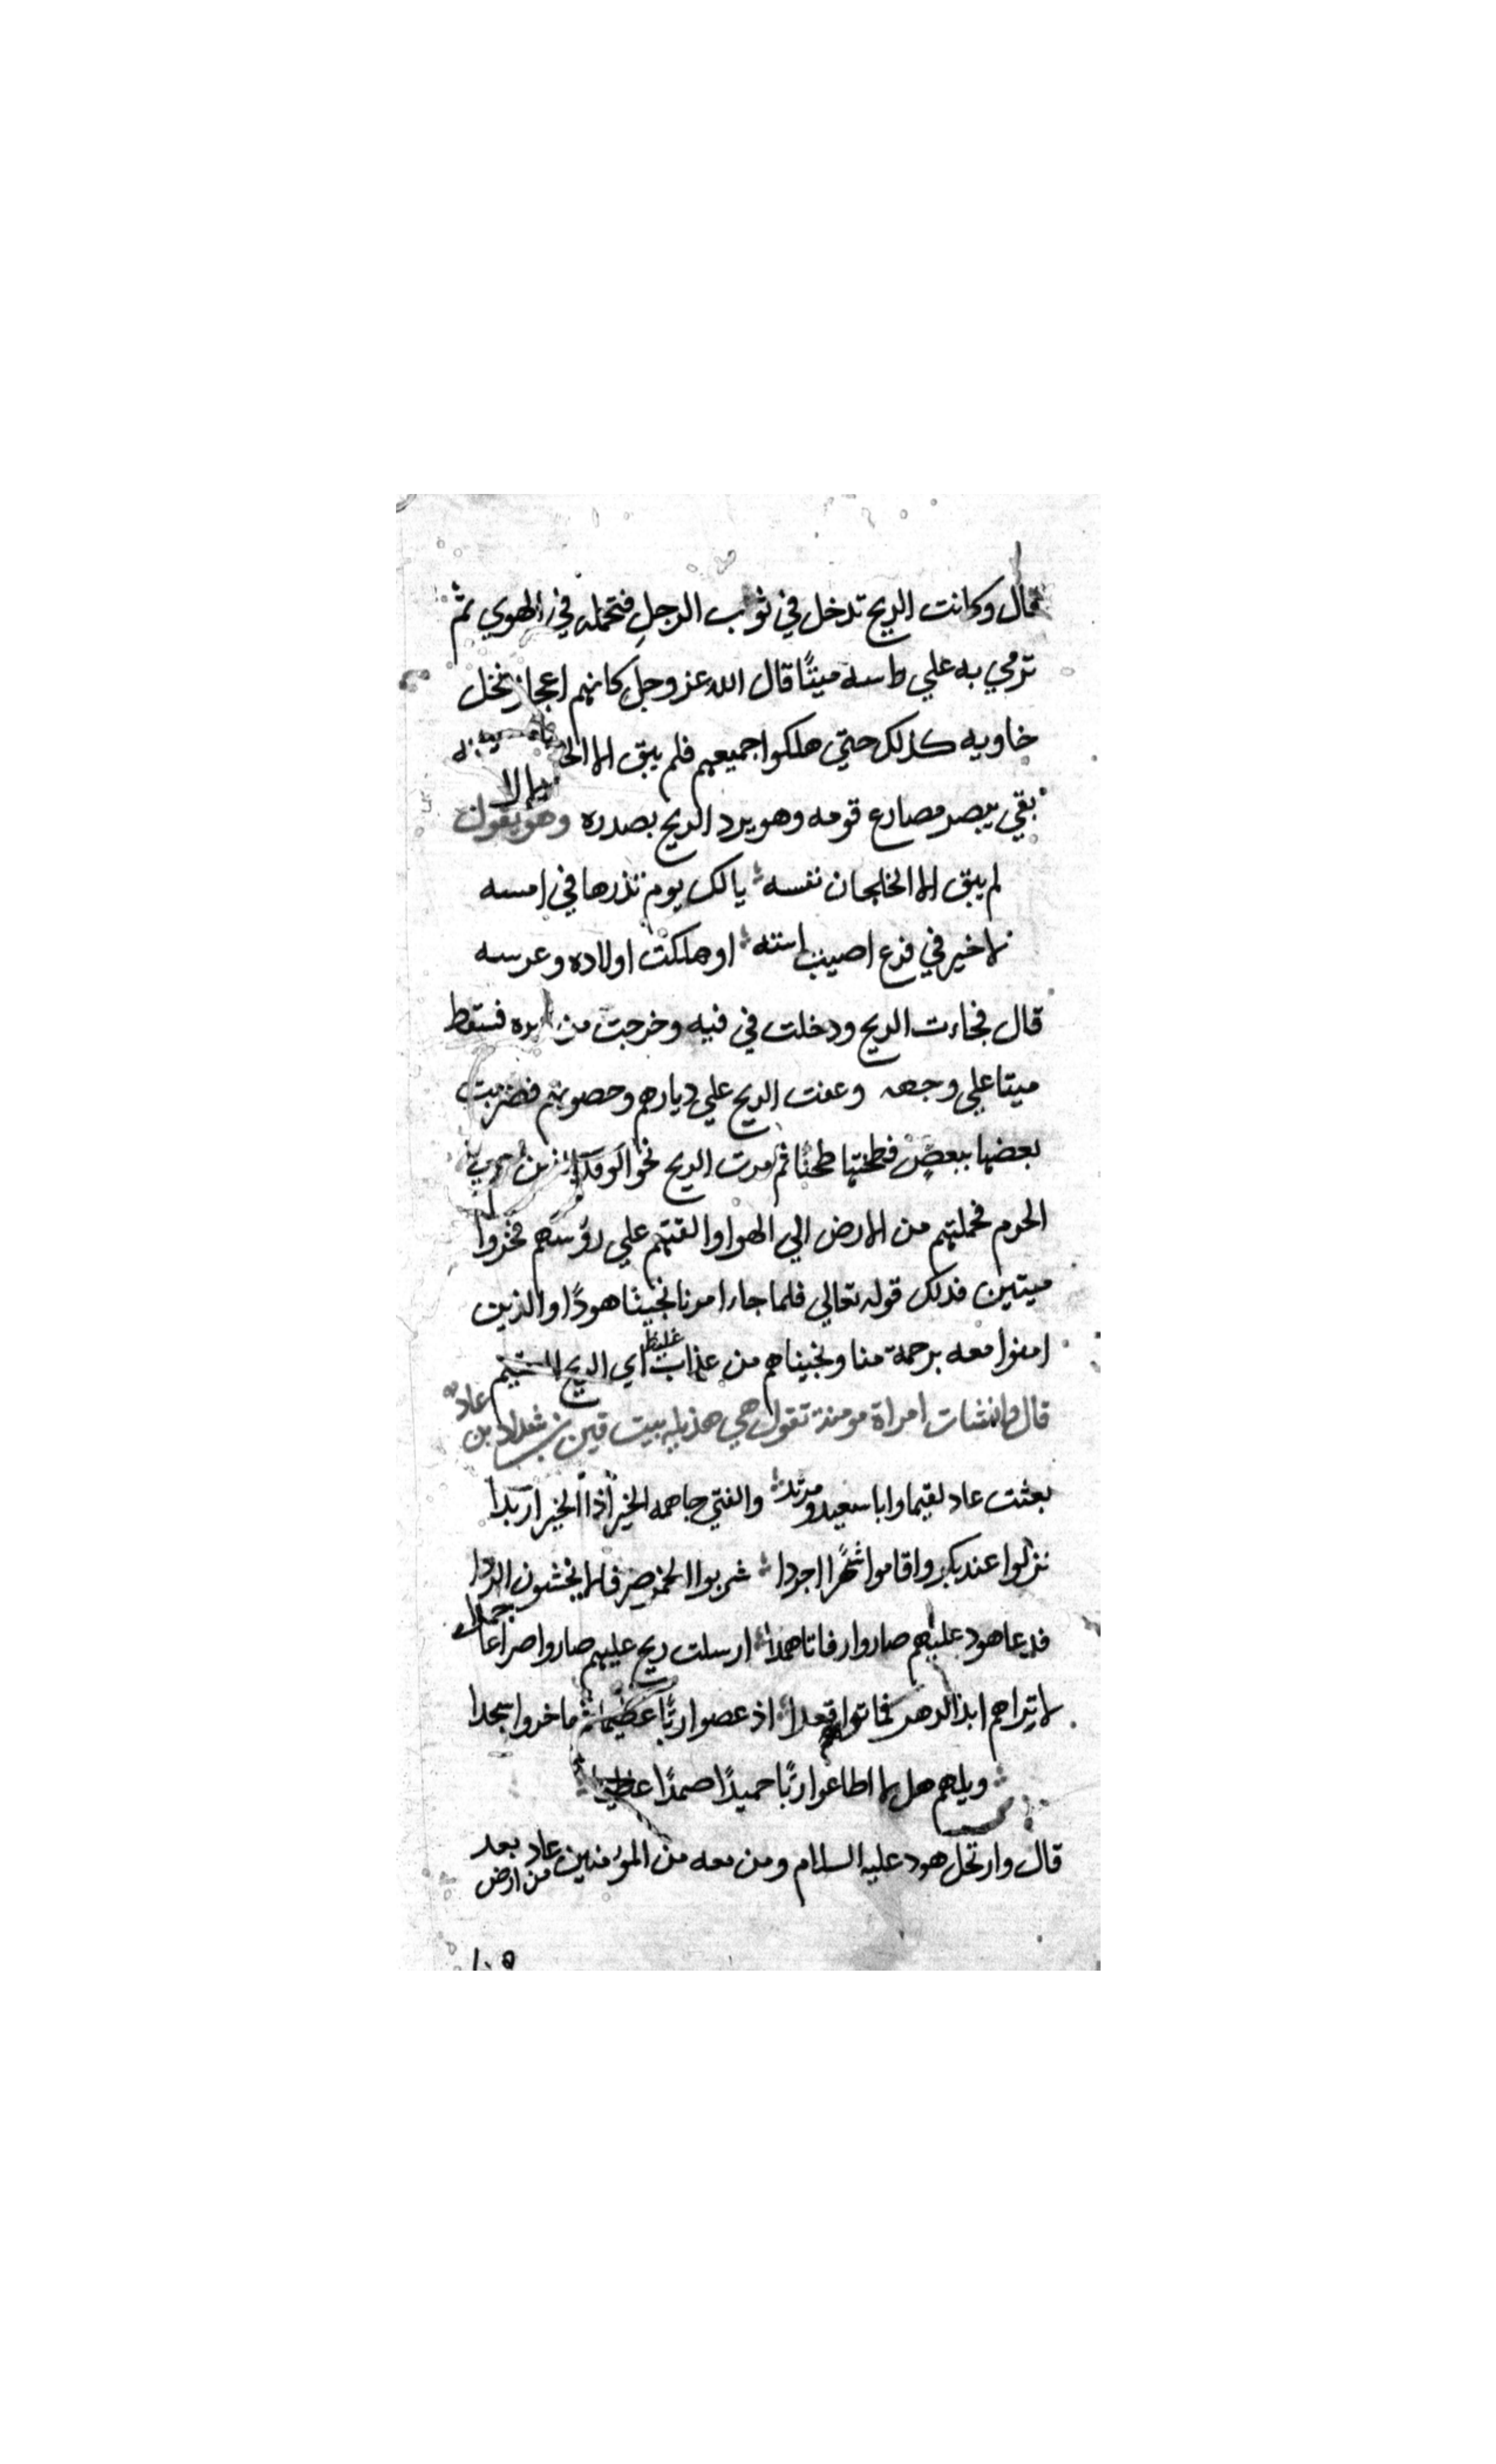 قال وكانت الريح تدخل في ثوب الرجل فتحمله في الهوي ثم
ترمي به علي راسه ميتًا قال الله عز وجل كانهم اعجاز نخل
خاويه كذلك حتي هلكوا جميعهم فلم يبق الا
بقي يبصر مصارع قومه وهو يرد الريح بصدره وهو يقول
لم يبق الا الخلجان نفسه يالك يوم تذرها في امسه
لا خير في فرع اصيب استه او هلكت اولاده وعرسه
قال فجاءت الريح ودخلت في فيه وخرجت من فسقط
ميتا علي وجهه وعفت الريح علي ديارهم وحصونهم فضربت
بعضها ببعض فطحنتها طحنًا ثم مرت الريح نحو الوفد
الحرم فحملتهم من الارض الي الهوا والقتهم علي رؤسهم فخروا
ميتين فذلك قوله تعالي فلما جاء امرنا نجينا هودًا والذين
امنوا معه برحمة منا ونجيناهم من عذاب غليظ اي الريح
قال وانشات امراة مومنة تقول هي هذيله بيت قين بن شداد بن عاد
بعثت عاد لقيما وابا سعيد ومرثد والفتي جاهمه الخير اذا الخير اربدا
نزلوا عند بكر واقاموا شهرًا اجردا شربوا الخمر صرفا لا يخشون الردا
فدعا هود عليهم صاروا رفاتا همدا ارسلت ريح عليهم صاروا صراعا
لا تراهم ابد الدهر اذ عصوا ربًا عظيما ما خروا سجدا
ويلهم هل لا اطاعوا ربًا حميدًا صمدًا
قال وارتحل هود عليه السلام ومن معه من المؤمنين من ارض عاد بعد